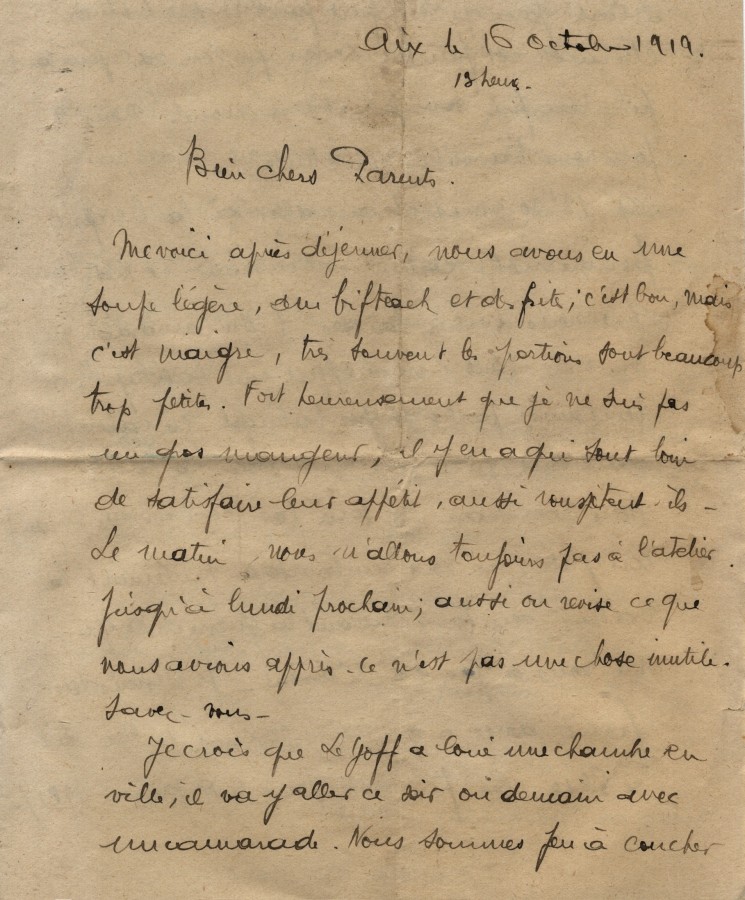 Aix le 16 Octobre 1919.
13 heures.
Bien chers Parents.
Me voici après déjeuner, nous avons eu une
soupe légère, du bifteack et des frites; c'est bon, mais
c'est maigre, très souvent les portions sont beaucoup
trop petites. Fort heureusement que je ne suis pas
un gros mangeur, il y en a qui sont loin
de satisfaire leur appétit, aussi rouspètent-ils -
Le matin nous n'allons toujours pas à l'atelier
jusqu'à lundi prochain; aussi on revise ce que
nous avions appris. ce n'est pas une chose inutile.
savez-vous -
Je crois que Le Goff a loué une chambre en
ville, il va y aller ce soir ou demain avec
un camarade. Nous sommes peu à coucher